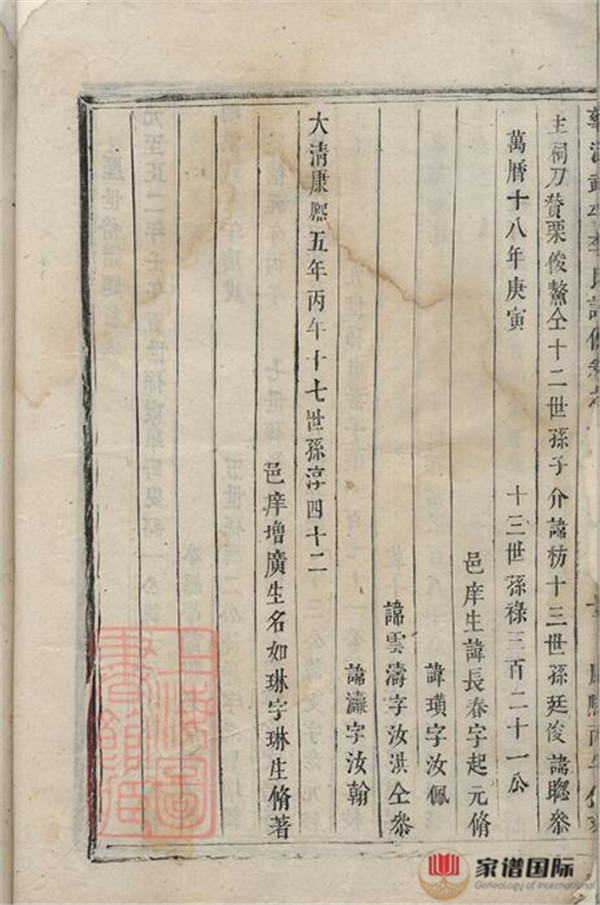 主祠刀贊栗俊鰲仝十二世孫子介諱枋十三世孫廷俊諱聰叅
萬曆十八年庚寅 十三世孫祿三百二十一公
邑庠生諱長春字起元脩
諱璜字汝佩
諱雲濤字汝洪仝叅
諱瀛字汝翰
大清康熙五年丙午十七世孫淳四十二
邑庠增廣生名如琳字琳生脩著
家谱国际
Genealogy of International